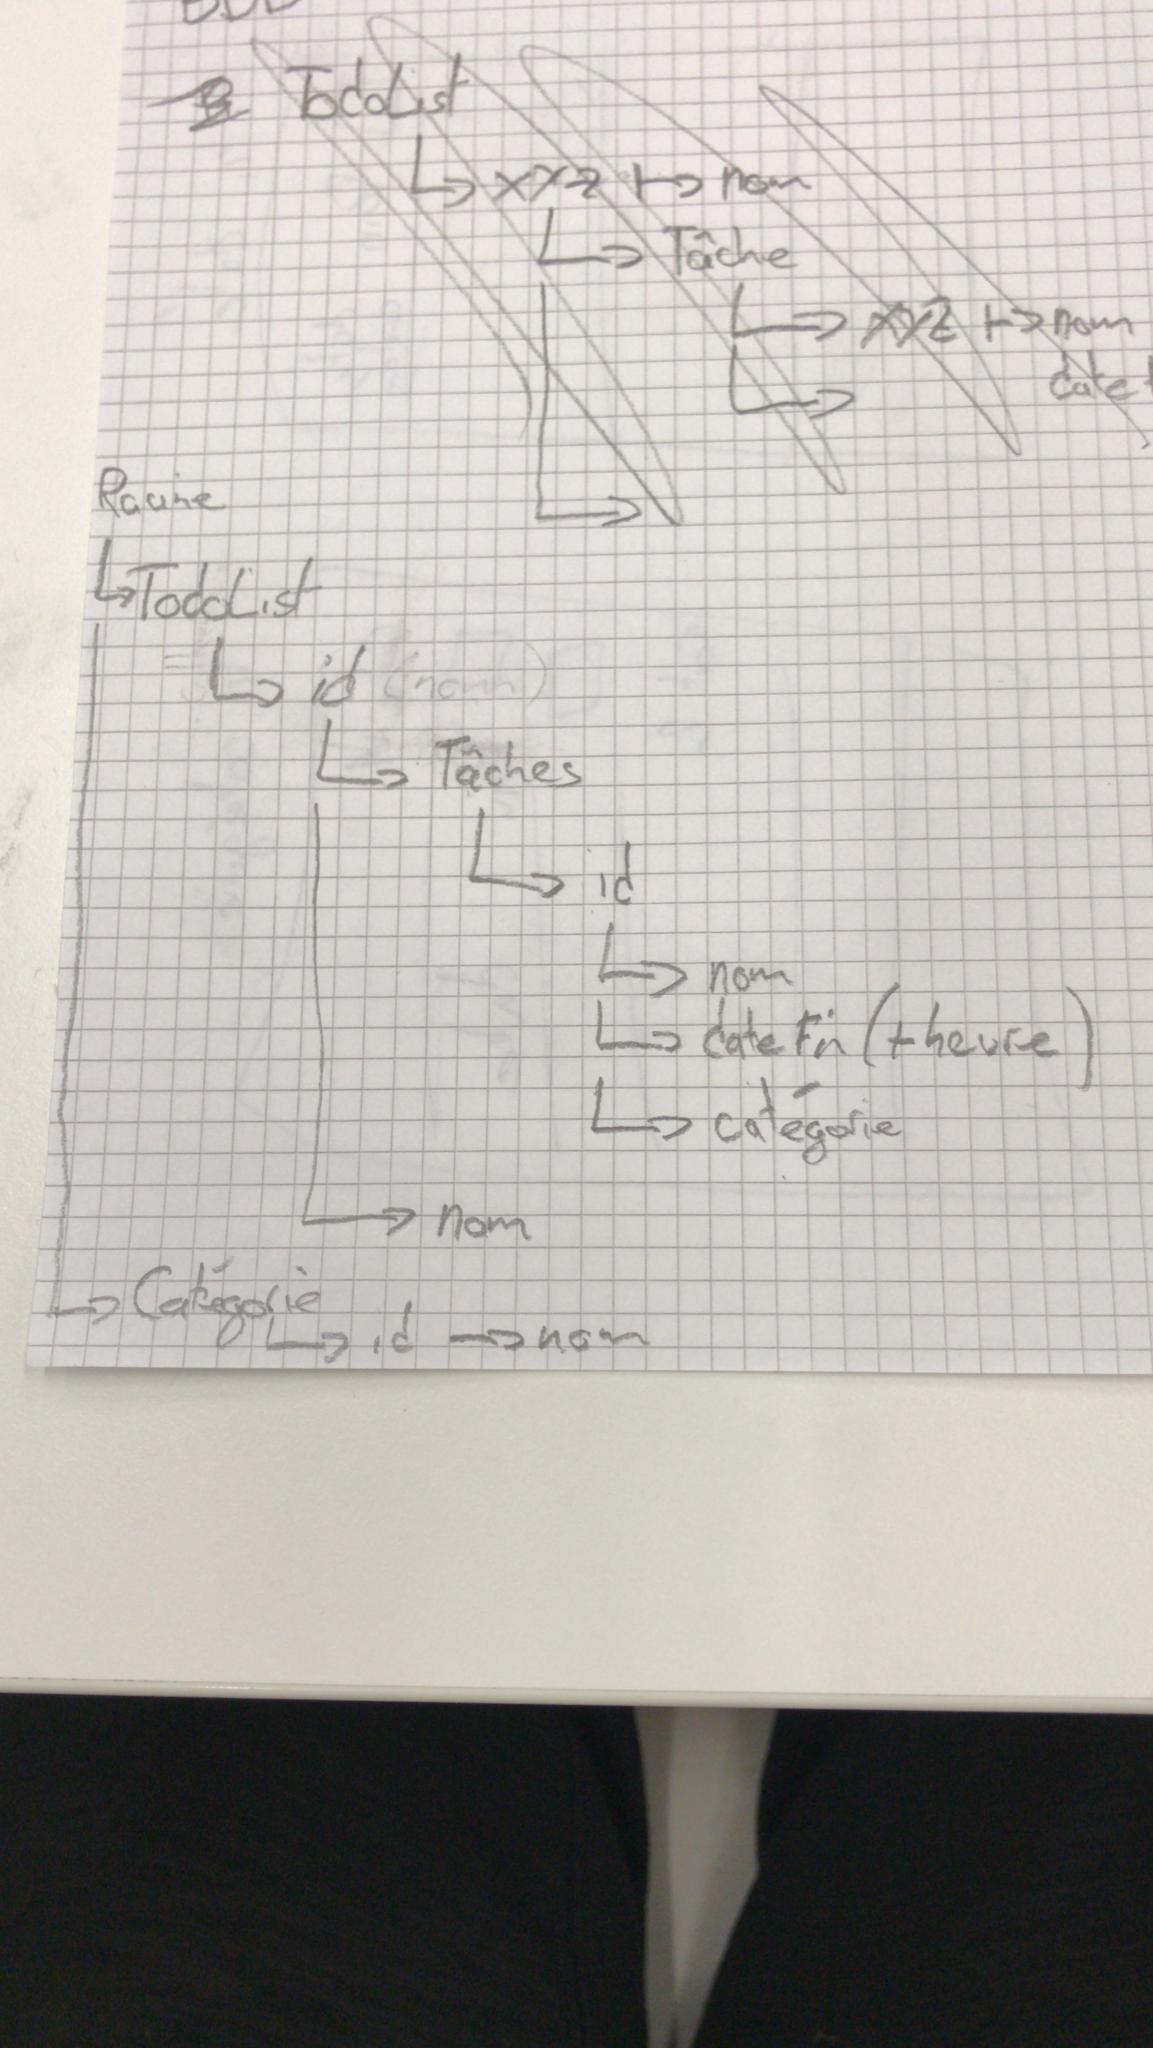 BDD
TodoList
XYZ → nom
Tâche
XYZ → nom
date
Racine
TodoList
id (nom)
Tâches
id
nom
dateFin (+heure)
catégorie
nom
Catégorie
id → nom